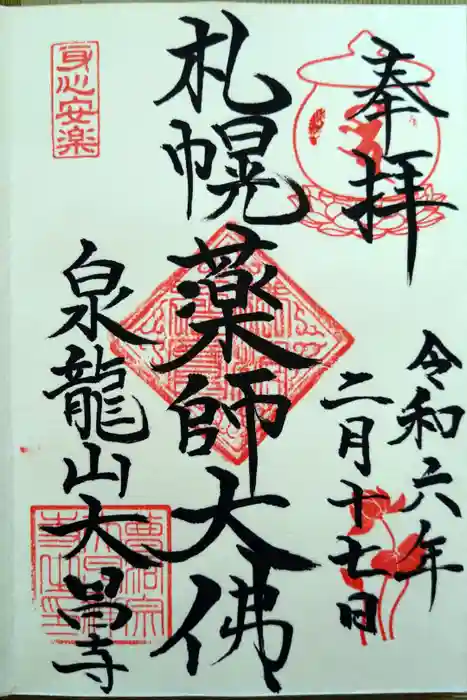 奉拝
令和六年
二月十七日
札幌薬師大佛
身心安楽
泉龍山大昌寺